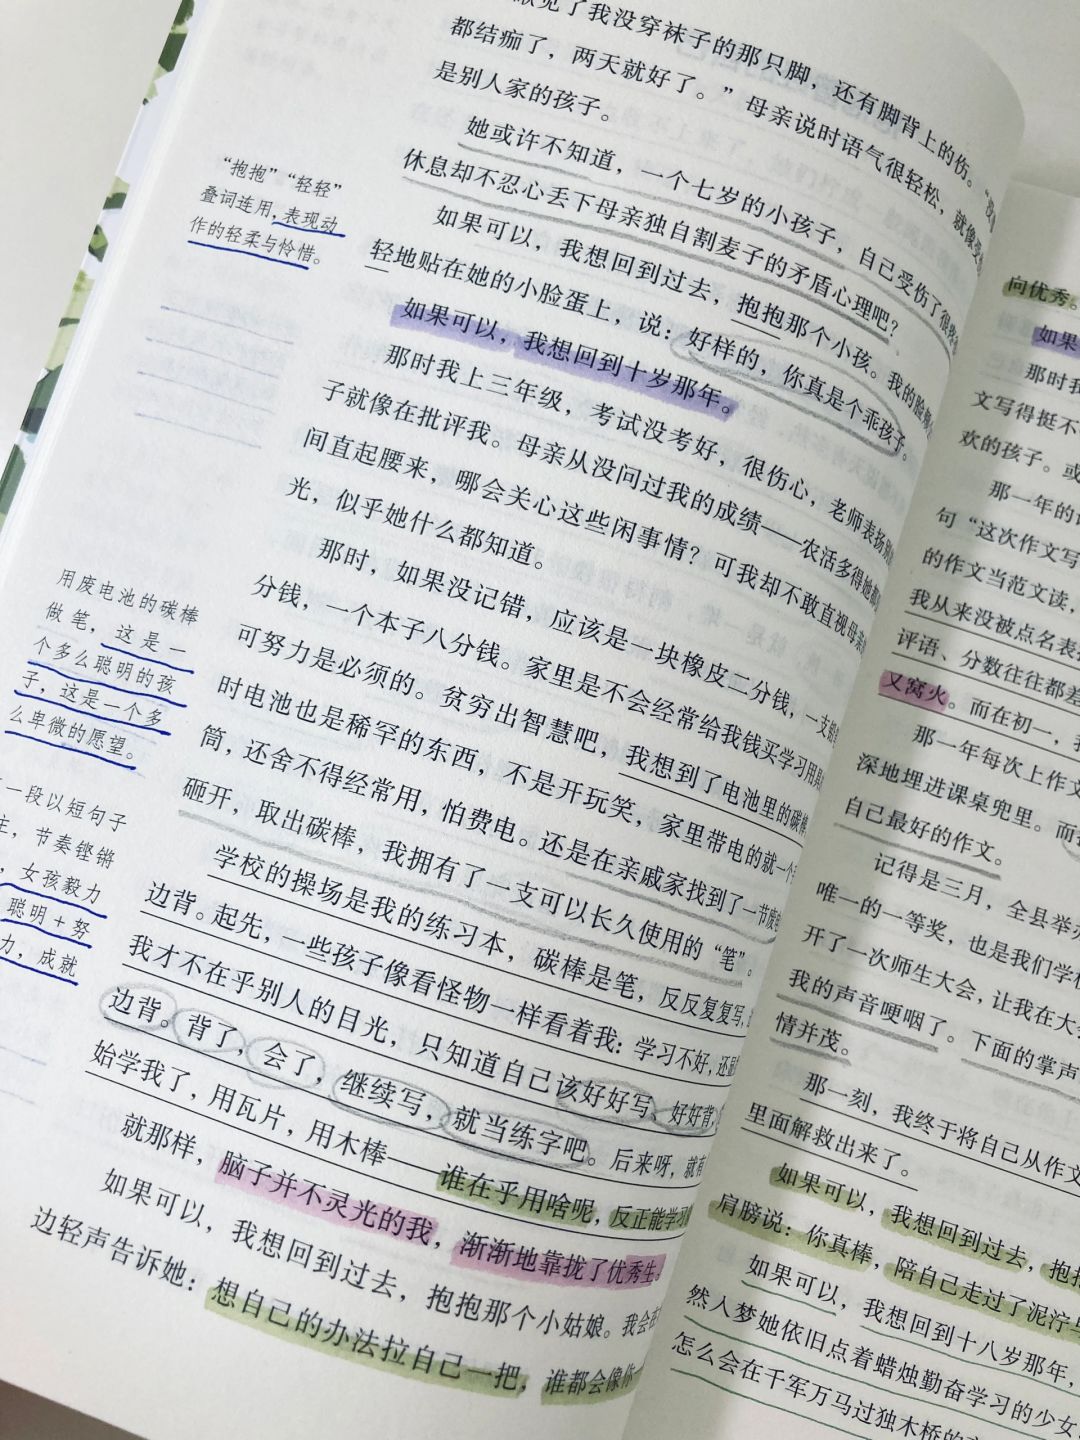 了我没穿袜子的那只脚，还有脚背上的伤。“没
都结痂了，两天就好了。”母亲说时语气很轻松，就像受
是别人家的孩子。
她或许不知道，一个七岁的小孩子，自己受伤了很
休息却不忍心丢下母亲独自割麦子的矛盾心理吧？
如果可以，我想回到过去，抱抱那个小孩。我的脸
轻地贴在她的小脸蛋上，说：好样的，你真是个乖孩子。
如果可以，我想回到十岁那年。
那时我上三年级，考试没考好，很伤心，老师表扬别
子就像在批评我。母亲从没问过我的成绩——农活多得她都
间直起腰来，哪会关心这些闲事情？可我却不敢直视母亲
光，似乎她什么都知道。
那时，如果没记错，应该是一块橡皮二分钱，一支铅
分钱，一个本子八分钱。家里是不会经常给我钱买学习用
可努力是必须的。贫穷出智慧吧，我想到了电池里的碳棒
时电池也是稀罕的东西，不是开玩笑，家里带电的就一个
筒，还舍不得经常用，怕费电。还是在亲戚家找到了一节废
砸开，取出碳棒，我拥有了一支可以长久使用的“笔”。
学校的操场是我的练习本，碳棒是笔，反反复复写，
边背。起先，一些孩子像看怪物一样看着我：学习不好，还
我才不在乎别人的目光，只知道自己该好好写，好好背，
边背。背了，会了，继续写，就当练字吧。后来呀，就有
始学我了，用瓦片，用木棒——谁在乎用啥呢，反正能学习
就那样，脑子并不灵光的我，渐渐地靠拢了优秀生。
如果可以，我想回到过去，抱抱那个小姑娘。我会
边轻声告诉她：想自己的办法拉自己一把，谁都会像你
“抱抱”“轻轻”
叠词连用，表现动
作的轻柔与怜惜。
用废电池的碳棒
做笔，这是一
个多么聪明的孩
子，这是一个多
么卑微的愿望。
一段以短句子
主，节奏铿锵
，女孩毅力
聪明＋努
力，成就
向优秀。
如果
那时我
文写得挺不
欢的孩子。或
那一年的
句“这次作文写
的作文当范文读，
我从来没被点名表
评语、分数往往都差
又窝火。而在初一，
那一年每次上作文
深地埋进课桌兜里。而
自己最好的作文。
记得是三月，全县举
唯一的一等奖，也是我们学校
开了一次师生大会，让我在大
我的声音哽咽了。下面的掌声
情并茂。
那一刻，我终于将自己从作文
里面解救出来了。
如果可以，我想回到过去，抱
肩膀说：你真棒，陪自己走过了泥泞
如果可以，我想回到十八岁那年，
然入梦她依旧点着蜡烛勤奋学习的少女
怎么会在千军万马过独木桥的